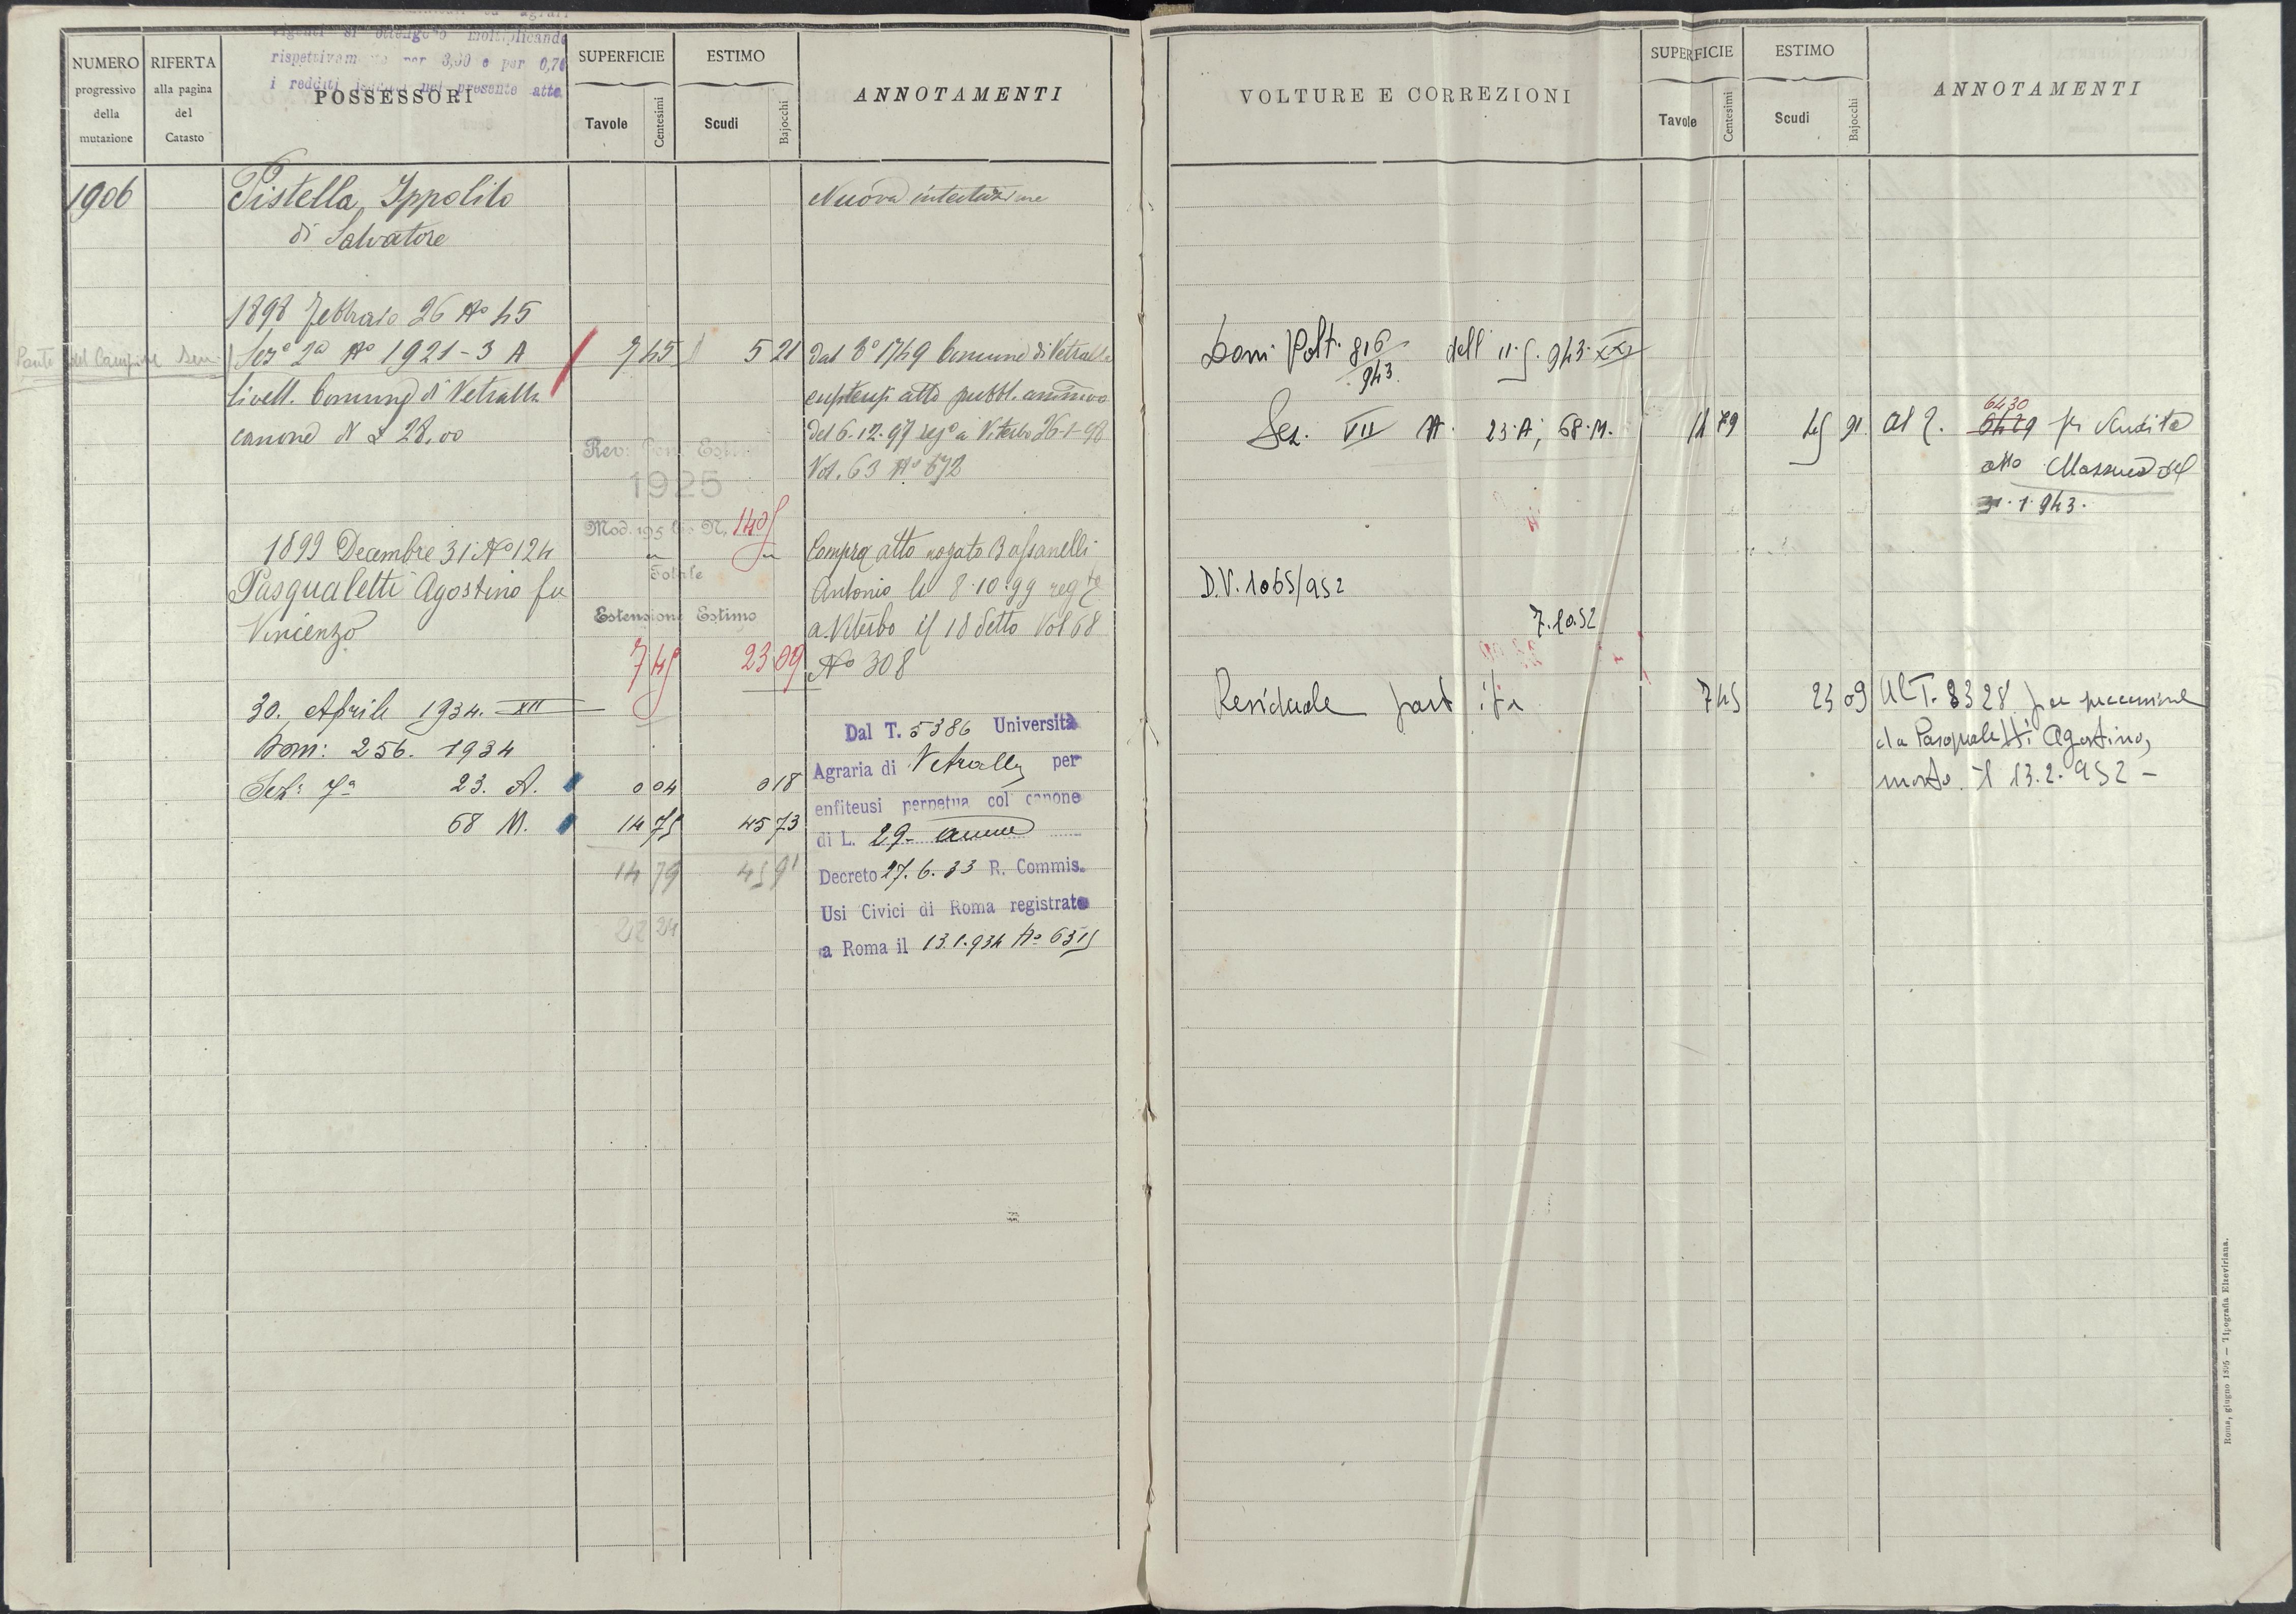 vigenti si ottengono moltiplicando
rispettivamente per 3,60 e per 0,70
i redditi iscritti nel presente atto
NUMERO
progressivo
della
mutazione
RIFERTA
alla pagina
del
Catasto
POSSESSORI
SUPERFICIE
Tavole
Centesimi
ESTIMO
Scudi
Bajocchi
ANNOTAMENTI
1906
Pistella Ippolito
di Salvatore
Nuova intestazione
1898 Febbraio 26 No 45
Ponte del Campione
Seze 2a No 1921-3 A 7 45 5 21
livell. Comune di Vetralla
canone di £ 28,00
dal 1749 Comune di Vetralla
atto pubbl. amm.vo
del 6.12.97 rego a Viterbo 26-1-98
Vol. 63 No 672
Rev: Gen. Estimi
1925
Mod. 195 N. 1405
Totale
Estensione Estimo
7 45 23 09
1899 Decembre 31 No 124
Pasqualetti Agostino fu
Vincenzo
Compra atto rogato Bassanelli
Antonio li 8.10.99 regto
a Viterbo il 18 detto Vol 68
No 308
30. Aprile 1934. XII
Dom: 256. 1934
Sez: 7a 23. A. 0 04 0 18
68 M. 14 75 45 73
14 79 45 91
22 24
Dal T. 5386 Università
Agraria di Vetralla per
enfiteusi perpetua col canone
di L. 29- annue
Decreto 27.6.33 R. Commis.
Usi Civici di Roma registrato
a Roma il 13.1.934 No 6315
VOLTURE E CORREZIONI
SUPERFICIE
Tavole
Centesimi
ESTIMO
Scudi
Bajocchi
ANNOTAMENTI
Dom Volt. 816/943. dell 11.5.943.XXI
Sez. VII N. 23.A; 68.M. 14 79 45 91
6430
al 2. 6429 per vendita
atto del
31.1.943.
D.V. 1065/952
7.10.52
Residuale partita 7 45 23 09
Al T. 8328 per successione
da Pasqualetti Agostino,
morto il 13.2.952 -
Roma, giugno 1895 — Tipografia Elzeviriana.